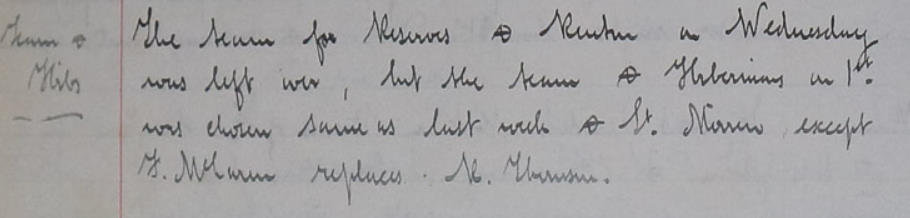 Team v
Hibs
The team for Reserves v Renton on Wednesday
was left over, but the team v Hibernians on 1st.
was chosen same as last week v St. Mirren except
J. McLaren replaces Thomson.